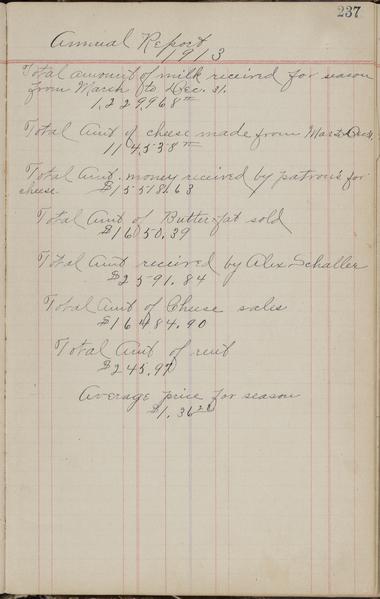 237
Annual Report
1913
Total amount of milk received for season
from March to Dec. 31.
1,229,968 #
Total Amt of cheese made from Mar to Dec 31.
114,538 #
Total Amt. money received by patrons for
cheese. $15518.63
Total Amt of Butter-fat sold
$1650.39
Total Amt received by Alex Schaller
$2591.84
Total Amt of Cheese sales
$16484.90
Total Amt of rent
$245.97
Average price for season
$1.36